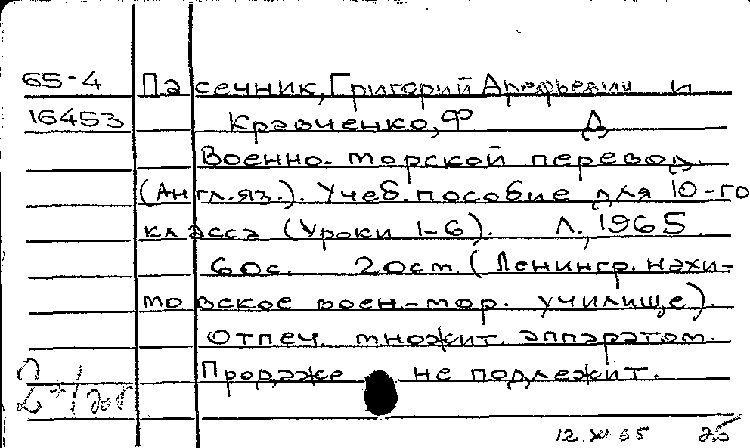 65-4 Пасечник, Григорий Арефьевич и
16453 Кравченко, Ф Д
Военно-морской перевод.
(Англ. яз.). Учеб. пособие для 10-го
класса (Уроки 1-6). Л., 1965.
60с. 20см. (Ленингр. нахи-
мовское воен-мор. училище).
Отпеч. множит. аппаратом.
Продаже не подлежит.
12.XI 65 25